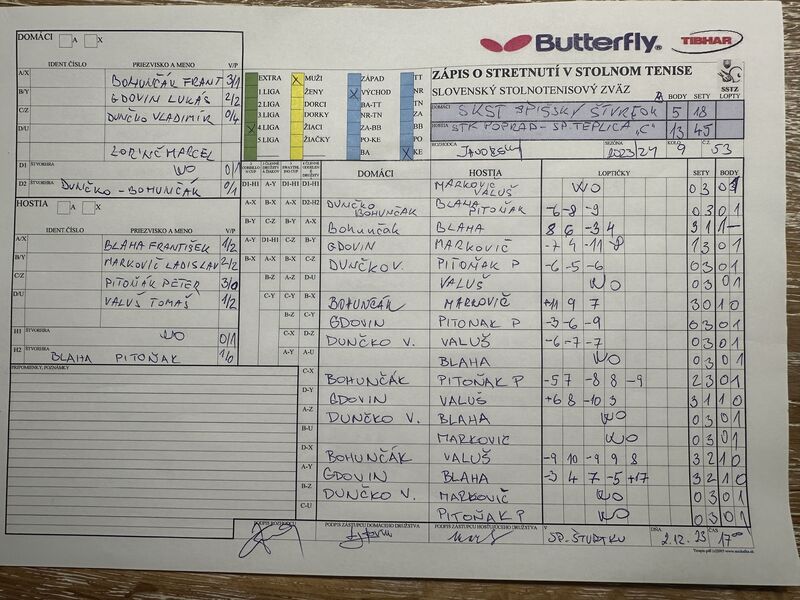 Butterfly
TIBHAR
DOMÁCI A X
IDENT.ČÍSLO PRIEZVISKO A MENO V/P
A/X BOHUNČÁK FRANT 3/1
B/Y GDOVIN LUKÁŠ 2/2
C/Z DUNČKO VLADIMÍR 0/4
D/U
LORINČ MARCEL
D1 ŠTVORHRA WO 0/1
D2 ŠTVORHRA DUNČKO - BOHUNČÁK 0/1
HOSTIA A X
IDENT. ČÍSLO PRIEZVISKO A MENO V/P
A/X BLAHA FRANTIŠEK 1/2
B/Y MARKOVIČ LADISLAV 2/2
C/Z PITOŇÁK PETER 3/0
D/U VALUŠ TOMÁŠ 1/2
H1 ŠTVORHRA WO 0/1
H2 ŠTVORHRA BLAHA PITOŇAK 1/0
PRIPOMIENKY, POZNÁMKY
EXTRA X MUŽI ZÁPAD TT
1.LIGA ŽENY X VÝCHOD NR
2.LIGA DORCI BA-TT TN
3.LIGA DORKY NR-TN ZA
X 4.LIGA ŽIACI ZA-BB BB
5.LIGA ŽIAČKY PO-KE PO
BA X KE
ZÁPIS O STRETNUTÍ V STOLNOM TENISE
SLOVENSKÝ STOLNOTENISOVÝ ZVÄZ
SSTZ
BODY SETY LOPTY
DOMÁCI SKST SPIŠSKÝ ŠTVRTOK 5 18
HOSTIA STK POPRAD - SP.TEPLICA "C" 13 45
ROZHODCA JAVORSKÝ SEZÓNA 2023/24 KOLO 9 Č. 53
DOMÁCI HOSTIA LOPTIČKY SETY BODY
D1-H1 A-Y D1-H1 D1-H1 D1-H1 MARKOVIČ VALUŠ WO 0 3 0 1
A-X B-X A-X A-X D2-H2 DUNČKO BOHUNČAK BLAHA PITOŇAK -6 -8 -9 0 3 0 1
B-Y C-Z B-Y B-Y A-X Bohunčak BLAHA 8 6 -3 4 3 1 1 -
A-Y D1-H1 C-Z B-Y GDOVIN MARKOVIČ -7 4 -11 -8 1 3 0 1
B-X A-X C-Z DUNČKO V. PITOŇAK P -6 -5 -6 0 3 0 1
B-Z A-Z D-U VALUŠ WO 0 3 0 1
C-Y C-Y B-X BOHUNČÁK MARKOVIČ +11 9 7 3 0 1 0
B-Z C-Y GDOVIN PITONAK P -3 -6 -9 0 3 0 1
C-X D-Z DUNČKO V. VALUŠ -6 -7 -7 0 3 0 1
A-Y A-U BLAHA WO 0 3 0 1
C-X BOHUNČÁK PITOŇAK P -5 7 -8 8 -9 2 3 0 1
D-Y GDOVIN VALUŠ +6 8 -10 3 3 1 1 0
A-Z DUNČKO V. BLAHA WO 0 3 0 1
B-U MARKOVIČ WO 0 3 0 1
D-X BOHUNČÁK VALUŠ -9 10 -9 9 8 3 2 1 0
A-Y GDOVIN BLAHA -3 4 7 -5 +17 3 2 1 0
B-Z DUNČKO V. MARKOVIČ WO 0 3 0 1
C-U PITOŇAK P WO 0 3 0 1
PODPIS ROZHODCU PODPIS ZÁSTUPCU DOMÁCEHO DRUŽSTVA PODPIS ZÁSTUPCU HOSŤUJÚCEHO DRUŽSTVA V DŇA ČAS
2.12.23 17⁰⁰